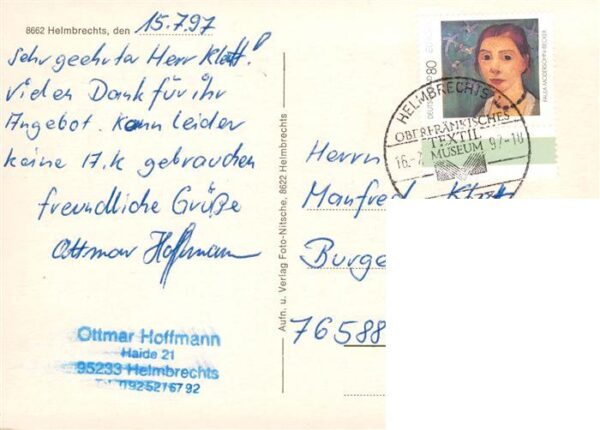 8662 Helmbrechts, den 15.7.97
Sehr geehrter Herr Klott!
vielen Dank für ihr
Angebot. Kann leider
keine A.K gebrauchen
freundliche Grüße
Ottmar Hoffmann
Ottmar Hoffmann
Haide 21
95233 Helmbrechts
Tel. 09252/6792
Aufn. u. Verlag Foto-Nitsche, 8622 Helmbrechts
DEUTSCHLAND 80
EUROPA
PAULA MODERSOHN-BECKER
HELMBRECHTS
OBERFRÄNKISCHES
TEXTIL
MUSEUM
16. 97-18
Herrn
Manfred
Burge
76588